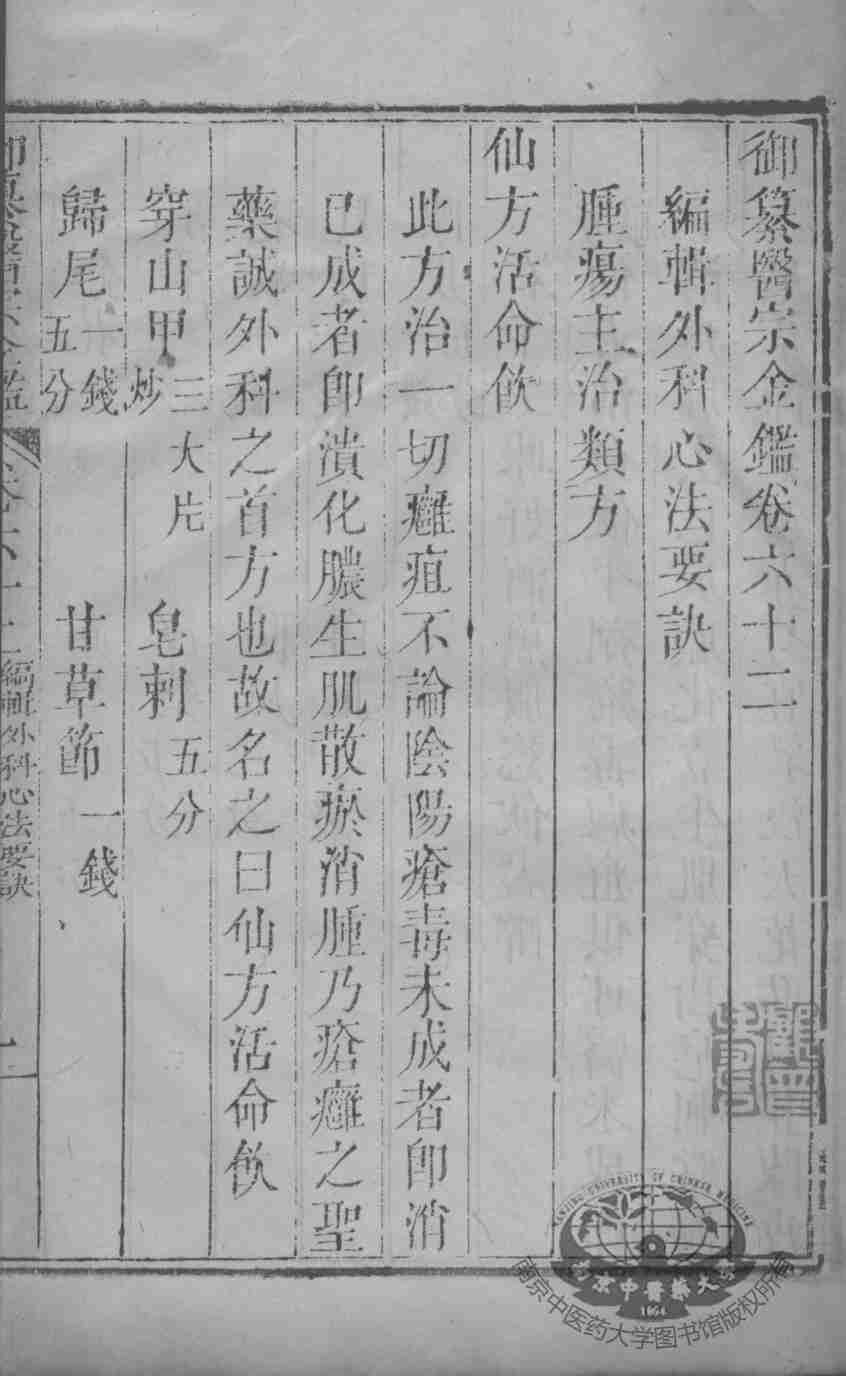 御纂醫宗金鑑卷六十二
編輯外科心法要訣
腫瘍主治類方
仙方活命飲
此方治一切癰疽不論陰陽瘡毒未成者即消
已成者即潰化膿生肌散瘀消腫乃瘡癰之聖
藥誠外科之首方也故名之曰仙方活命飲
穿山甲 三大片炒 皂刺 五分
歸尾 一錢五分 甘草節 一錢
編輯外科心法要訣
NANJING UNIVERSITY OF CHINESE MEDICINE
南京中醫藥大學
1954
南京中医药大学图书馆版权所有